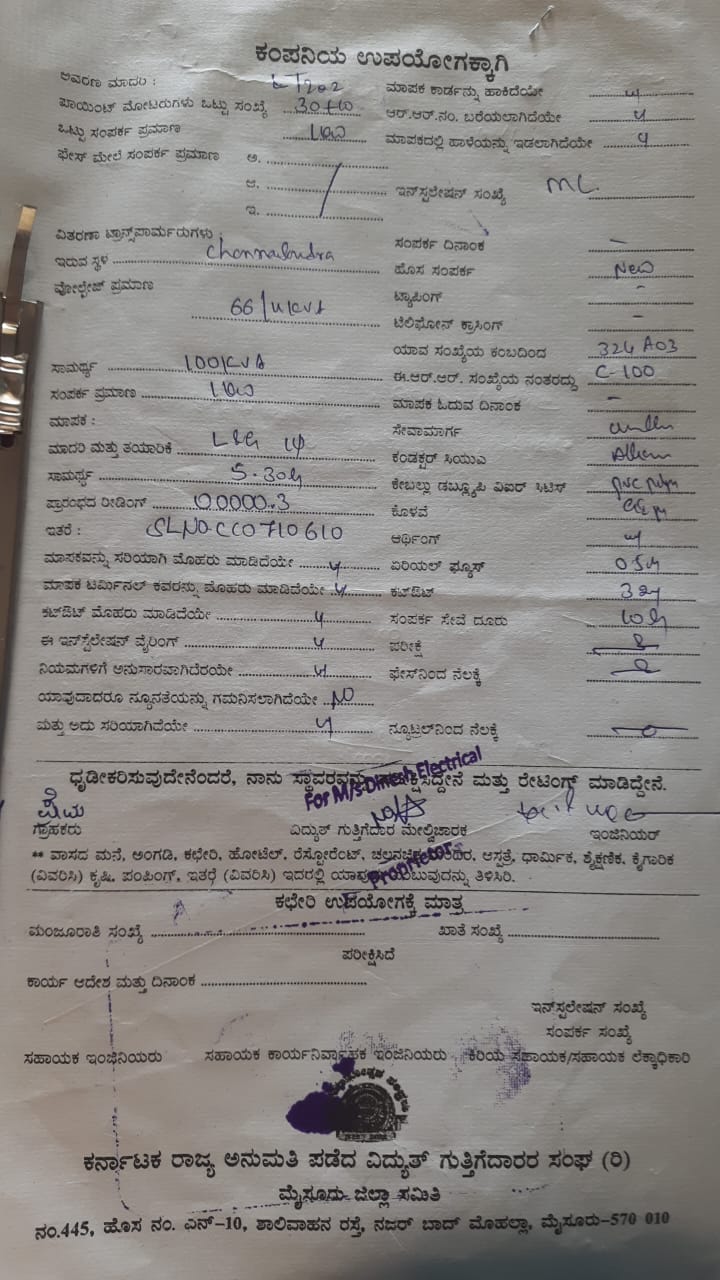 ಕಂಪನಿಯ ಉಪಯೋಗಕ್ಕಾಗಿ
ಆವರಣ ಮಾದರಿ : LT202
ಮಾಪಕ ಕಾರ್ಡನ್ನು ಹಾಕಿದೆಯೇ y
ಪಾಯಿಂಟ್ ಮೋಟರುಗಳು ಒಟ್ಟು ಸಂಖ್ಯೆ
ಆರ್.ಆರ್.ನಂ. ಬರೆಯಲಾಗಿದೆಯೇ y
ಒಟ್ಟು ಸಂಪರ್ಕ ಪ್ರಮಾಣ
ಮಾಪಕದಲ್ಲಿ ಹಾಳೆಯನ್ನು ಇಡಲಾಗಿದೆಯೇ y
ಫೇಸ್ ಮೇಲೆ ಸಂಪರ್ಕ ಪ್ರಮಾಣ ಅ.
ಆ.
ಇನ್‌ಸ್ಟಲೇಷನ್ ಸಂಖ್ಯೆ
ಇ.
ವಿತರಣಾ ಟ್ರಾನ್ಸ್‌ಪಾರ್ಮರುಗಳು :
ಸಂಪರ್ಕ ದಿನಾಂಕ –
ಇರುವ ಸ್ಥಳ
ಹೊಸ ಸಂಪರ್ಕ New
ವೋಲ್ಟೇಜ್ ಪ್ರಮಾಣ
ಟ್ಯಾಪಿಂಗ್ -
ಟೆಲಿಫೋನ್ ಕ್ರಾಸಿಂಗ್ -
ಯಾವ ಸಂಖ್ಯೆಯ ಕಂಬದಿಂದ 324 A03
ಸಾಮರ್ಥ್ಯ 100KVA
ಈ.ಆರ್.ಆರ್. ಸಂಖ್ಯೆಯ ನಂತರದ್ದು C-100
ಸಂಪರ್ಕ ಪ್ರಮಾಣ
ಮಾಪಕ ಓದುವ ದಿನಾಂಕ –
ಮಾಪಕ :
ಸೇವಾಮಾರ್ಗ
ಮಾದರಿ ಮತ್ತು ತಯಾರಿಕೆ L&G
ಕಂಡಕ್ಟರ್ ಸಿಯುಎ
ಸಾಮರ್ಥ್ಯ 5-30A
ಕೇಬಲ್ಲು ಡಬ್ಲ್ಯೂಪಿ ವಿಐರ್ ಸಿಟಿಸ್
ಪ್ರಾರಂಭದ ರೀಡಿಂಗ್ 00000.3
ಕೊಳವೆ
ಇತರೆ : SLNO CC0710610
ಆರ್ಥಿಂಗ್ y
ಮಾಪಕವನ್ನು ಸರಿಯಾಗಿ ಮೊಹರು ಮಾಡಿದೆಯೇ y
ಏರಿಯಲ್ ಫ್ಯೂಸ್
ಮಾಪಕ ಟರ್ಮಿನಲ್ ಕವರನ್ನು ಮೊಹರು ಮಾಡಿದೆಯೇ y
ಕಟ್‌ಔಟ್
ಕಟ್‌ಔಟ್ ಮೊಹರು ಮಾಡಿದೆಯೇ y
ಸಂಪರ್ಕ ಸೇವೆ ದೂರು
ಈ ಇನ್‌ಸ್ಟಲೇಷನ್ ವೈರಿಂಗ್ y
ಪರೀಕ್ಷೆ
ನಿಯಮಗಳಿಗೆ ಅನುಸಾರವಾಗಿದೆರಯೇ y
ಫೇಸ್‌ನಿಂದ ನೆಲಕ್ಕೆ
ಯಾವುದಾದರೂ ನ್ಯೂನತೆಯನ್ನು ಗಮನಿಸಲಾಗಿದೆಯೇ NO
ಮತ್ತು ಅದು ಸರಿಯಾಗಿದೆಯೇ y
ನ್ಯೂಟ್ರಲ್‌ನಿಂದ ನೆಲಕ್ಕೆ
ಧೃಡೀಕರಿಸುವುದೇನೆಂದರೆ, ನಾನು ಸ್ಥಾಪರವನ್ನು ಪರೀಕ್ಷಿಸಿದ್ದೇನೆ ಮತ್ತು ರೇಟಿಂಗ್ಸ್ ಮಾಡಿದ್ದೇನೆ.
For M/s Dinesh Electrical
ಗ್ರಾಹಕರು
ವಿದ್ಯುತ್ ಗುತ್ತಿಗೆದಾರ ಮೇಲ್ವಿಚಾರಕ
ಇಂಜಿನಿಯರ್
Proprietor
** ವಾಸದ ಮನೆ, ಅಂಗಡಿ, ಕಛೇರಿ, ಹೋಟೆಲ್, ರೆಸ್ಟೋರೆಂಟ್, ಚಲನಚಿತ್ರ ಮಂದಿರ, ಆಸ್ಪತ್ರೆ, ಧಾರ್ಮಿಕ, ಶೈಕ್ಷಣಿಕ, ಕೈಗಾರಿಕೆ
(ವಿವರಿಸಿ) ಕೃಷಿ, ಪಂಪಿಂಗ್, ಇತರೆ (ವಿವರಿಸಿ) ಇದರಲ್ಲಿ ಯಾವುದು ಎಂಬುವುದನ್ನು ತಿಳಿಸಿರಿ.
ಕಛೇರಿ ಉಪಯೋಗಕ್ಕೆ ಮಾತ್ರ
ಮಂಜೂರಾತಿ ಸಂಖ್ಯೆ
ಖಾತೆ ಸಂಖ್ಯೆ
ಪರೀಕ್ಷಿಸಿದೆ
ಕಾರ್ಯ ಆದೇಶ ಮತ್ತು ದಿನಾಂಕ
ಇನ್‌ಸ್ಟಲೇಷನ್ ಸಂಖ್ಯೆ
ಸಂಪರ್ಕ ಸಂಖ್ಯೆ
ಸಹಾಯಕ ಇಂಜಿನಿಯರು
ಸಹಾಯಕ ಕಾರ್ಯನಿರ್ವಾಹಕ ಇಂಜಿನಿಯರು
ಕಿರಿಯ ಸಹಾಯಕ/ಸಹಾಯಕ ಲೆಕ್ಕಾಧಿಕಾರಿ
ಕರ್ನಾಟಕ ರಾಜ್ಯ ಅನುಮತಿ ಪಡೆದ ವಿದ್ಯುತ್ ಗುತ್ತಿಗೆದಾರರ ಸಂಘ (ರಿ)
ಮೈಸೂರು ಜಿಲ್ಲಾ ಸಮಿತಿ
ನಂ.445, ಹೊಸ ನಂ. ಎನ್-10, ಶಾಲಿವಾಹನ ರಸ್ತೆ, ನಜರ್ ಬಾದ್ ಮೊಹಲ್ಲಾ, ಮೈಸೂರು-570 010